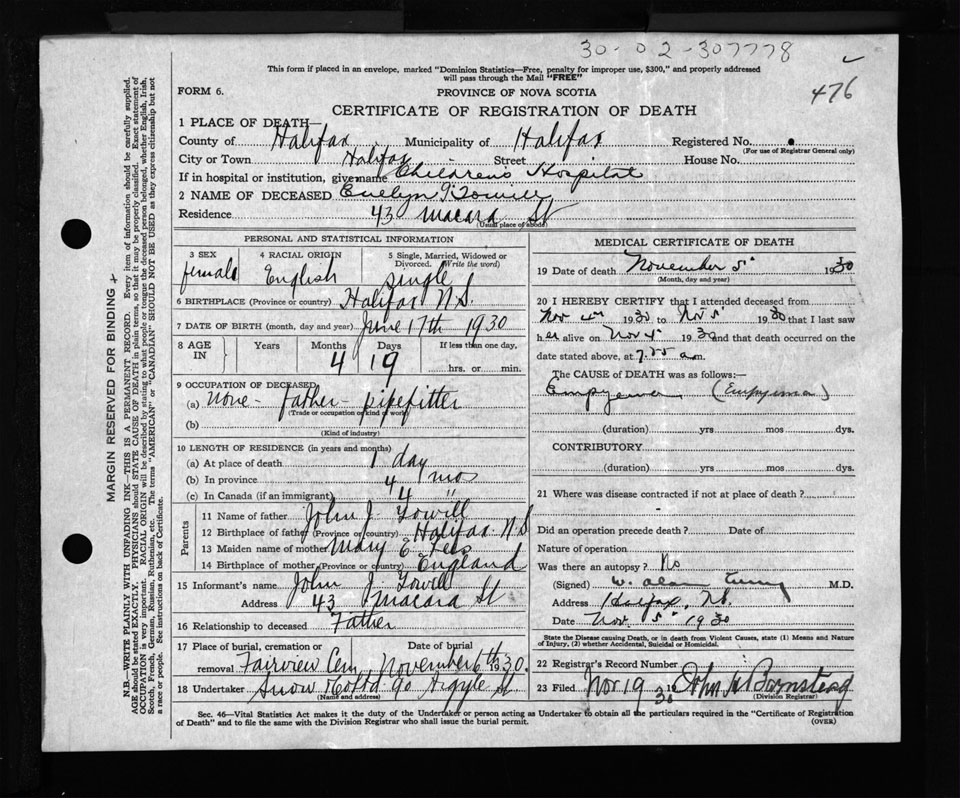 30-02-307778
This form if placed in an envelope, marked "Dominion Statistics—Free, penalty for improper use, $300," and properly addressed
will pass through the Mail "FREE"
476
FORM 6.
PROVINCE OF NOVA SCOTIA
CERTIFICATE OF REGISTRATION OF DEATH
1 PLACE OF DEATH—
County of Halifax Municipality of Halifax Registered No.
(For use of Registrar General only)
City or Town Halifax Street House No.
If in hospital or institution, give name Children's Hospital
2 NAME OF DECEASED Evelyn
Residence 43 Macara St
(Usual place of abode)
PERSONAL AND STATISTICAL INFORMATION
3 SEX 4 RACIAL ORIGIN 5 Single, Married, Widowed or
Divorced. (Write the word)
female English single
6 BIRTHPLACE (Province or country) Halifax N.S.
7 DATE OF BIRTH (month, day and year) June 17th 1930
8 AGE IN Years Months Days If less than one day,
4 19 hrs. or min.
9 OCCUPATION OF DECEASED
(a) None - Father - pipefitter
(Trade or occupation or kind of work)
(b)
(Kind of industry)
10 LENGTH OF RESIDENCE (in years and months)
(a) At place of death 1 day
(b) In province 4 mos
(c) In Canada (if an immigrant) 4 "
Parents
11 Name of father John J.
12 Birthplace of father (Province or country) Halifax N.S
13 Maiden name of mother Mary E.
14 Birthplace of mother (Province or country) England
15 Informant's name John J.
Address 43 Macara St
16 Relationship to deceased Father
17 Place of burial, cremation or Date of burial
removal Fairview Cem November 6th 1930.
18 Undertaker Snow & Co Ltd 90 Argyle St
(Name and address)
MEDICAL CERTIFICATE OF DEATH
19 Date of death November 5 1930
(Month, day and year)
20 I HEREBY CERTIFY that I attended deceased from
Nov 4th 1930 to Nov 5 1930 that I last saw
her alive on Nov 5 1930 and that death occurred on the
date stated above, at a.m.
The CAUSE OF DEATH was as follows:—
Empyema (Empyema)
(duration) yrs mos dys.
CONTRIBUTORY
(duration) yrs mos dys.
21 Where was disease contracted if not at place of death?
Did an operation precede death? Date of
Nature of operation
Was there an autopsy? No
(Signed) W. Alan M.D.
Address Halifax, N.S.
Date Nov 5 1930
State the Disease causing Death, or in death from Violent Causes, state (1) Means and Nature
of Injury, (2) whether Accidental, Suicidal or Homicidal.
22 Registrar's Record Number
23 Filed Nov 19 1930 John H Barnstead
(Division Registrar)
Sec. 46—Vital Statistics Act makes it the duty of the Undertaker or person acting as Undertaker to obtain all the particulars required in the "Certificate of Registration
of Death" and to file the same with the Division Registrar who shall issue the burial permit.
(OVER)
MARGIN RESERVED FOR BINDING
N.B.—WRITE PLAINLY WITH UNFADING INK—THIS IS A PERMANENT RECORD. Every item of information should be carefully supplied.
AGE should be stated EXACTLY. PHYSICIANS should STATE CAUSE OF DEATH in plain terms, so that it may be properly classified. Exact statement of
OCCUPATION is very important. RACIAL ORIGIN will be described by stating to what people or tongue the deceased person belonged, whether English, Irish,
Scotch, French, German, Russian, Ruthenian, etc. The terms "AMERICAN" or "CANADIAN" SHOULD NOT BE USED as they express citizenship but not
a race or people. See instructions on back of Certificate.